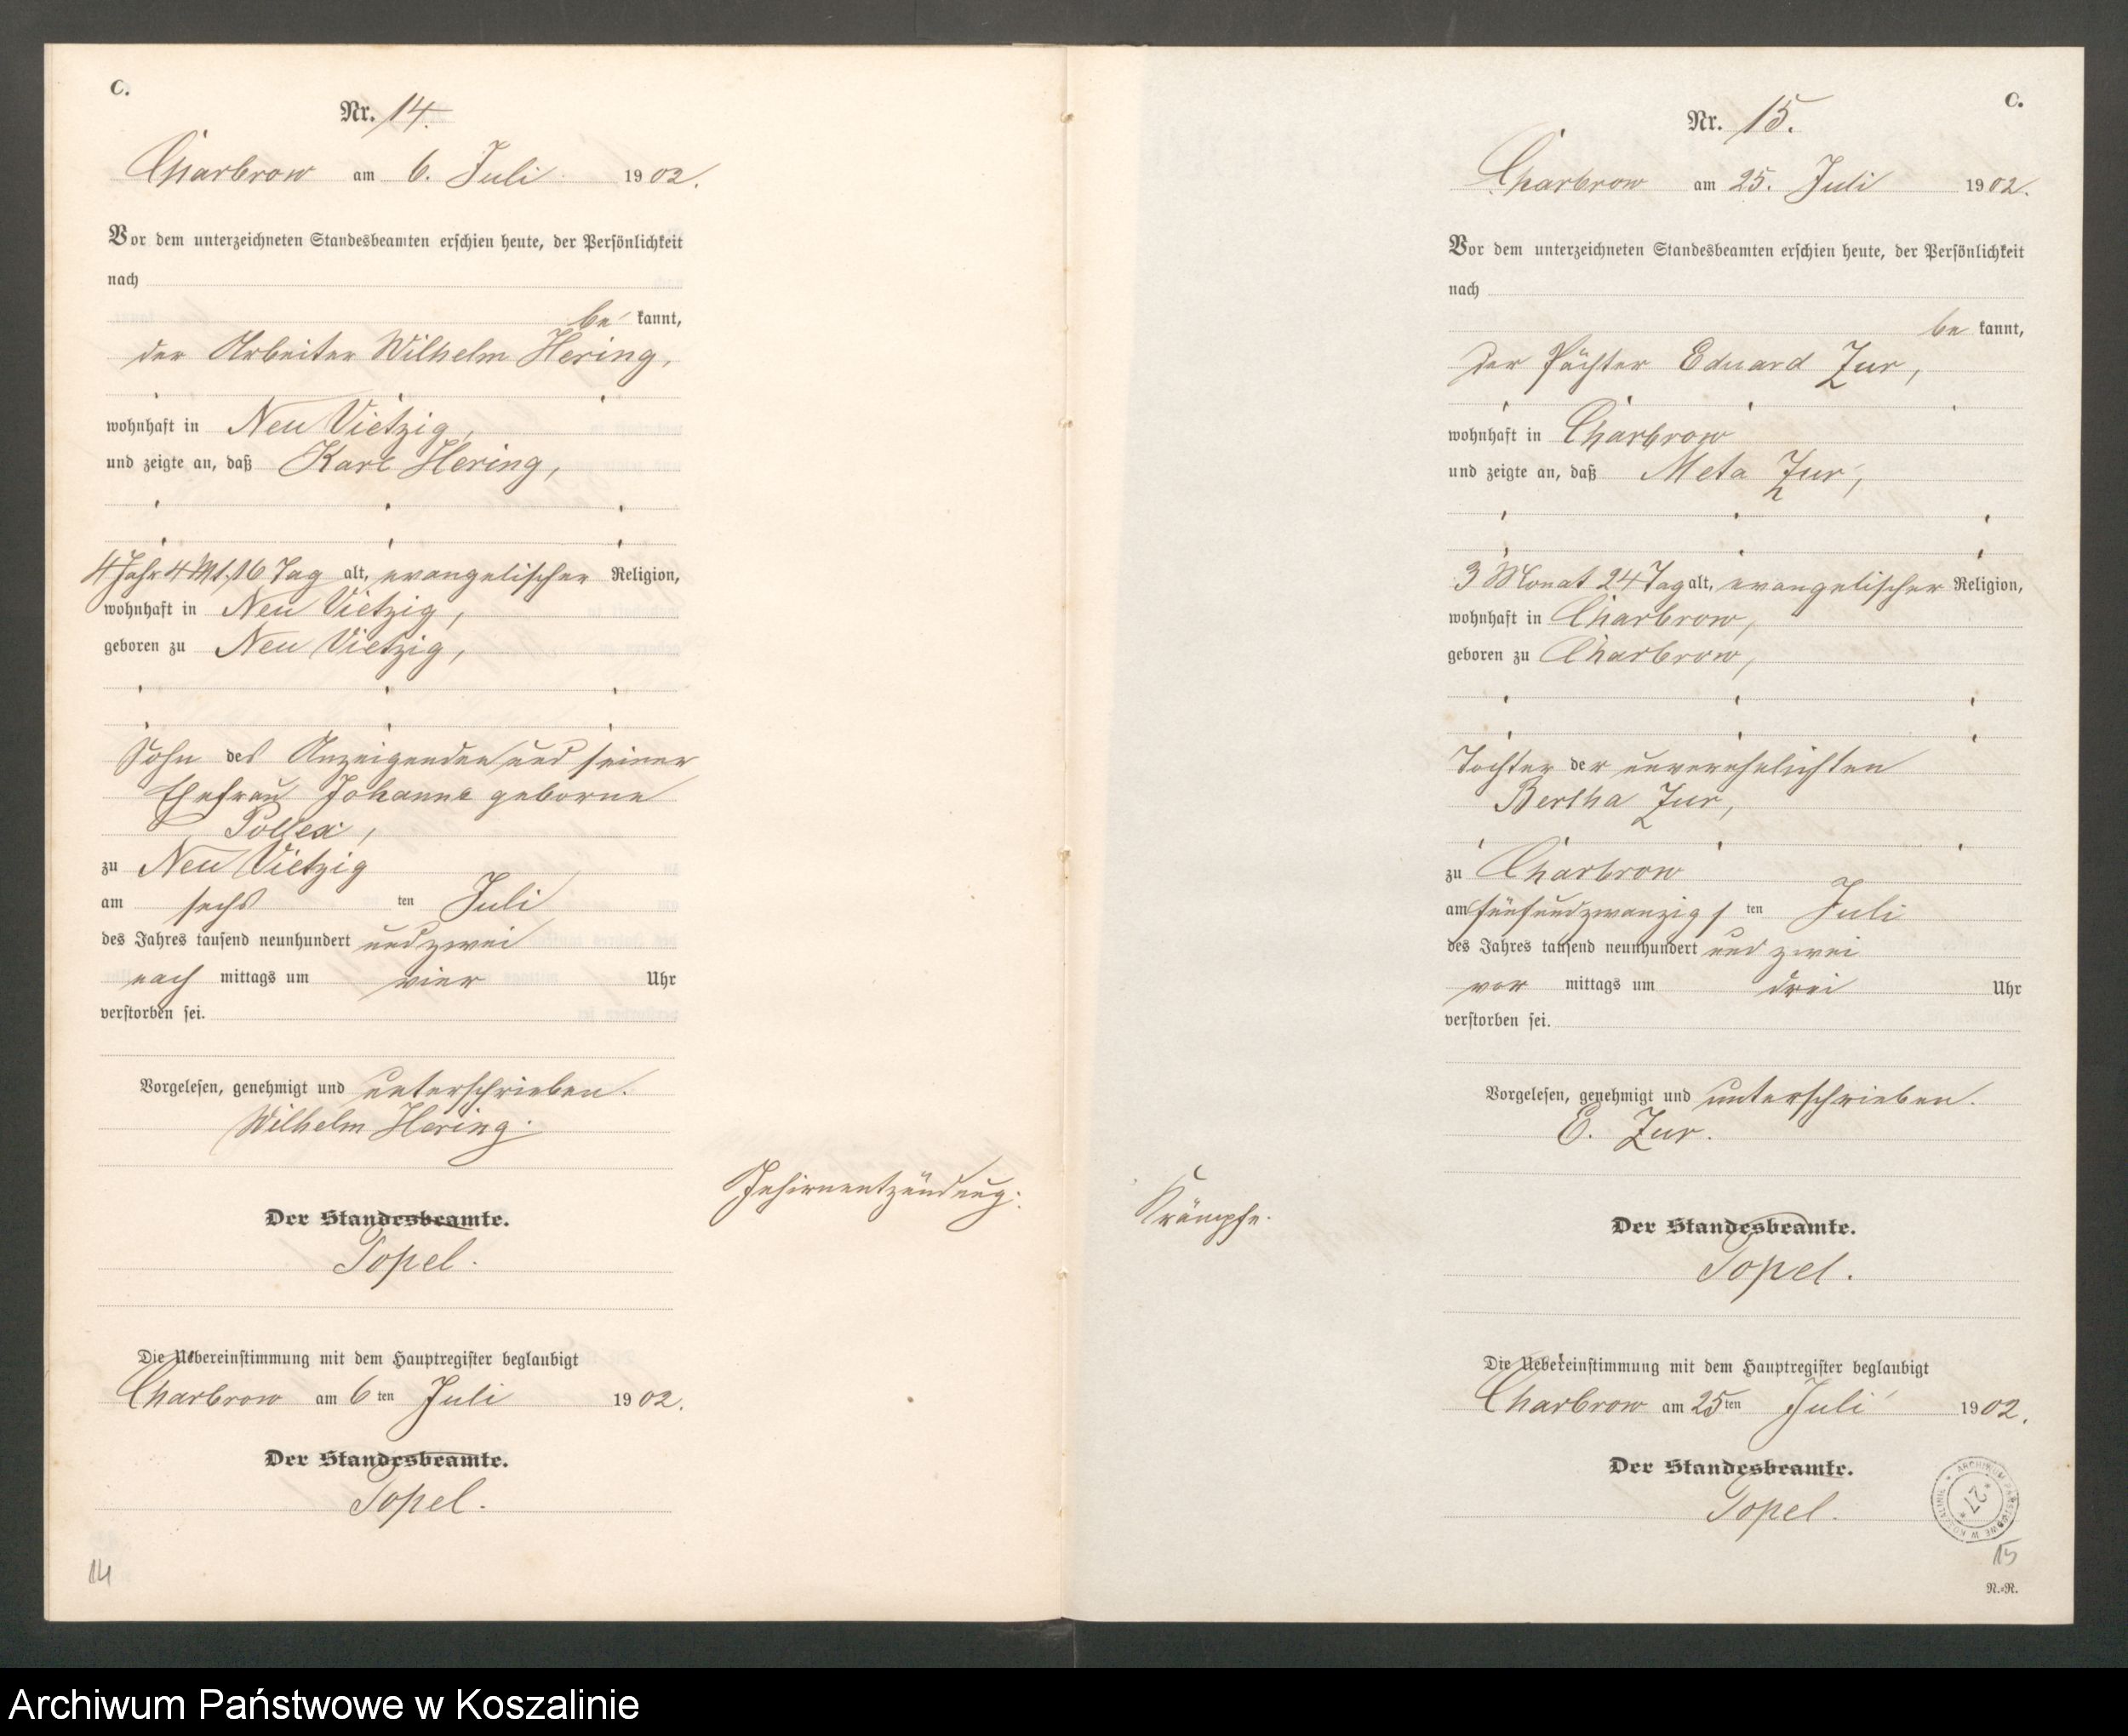 C.
Nr. 14.
Charbrow am 6. Juli 1902.
Vor dem unterzeichneten Standesbeamten erschien heute, der Persönlichkeit
nach
be kannt,
der Arbeiter Wilhelm Hering,
wohnhaft in Neu Vietzig,
und zeigte an, daß Karl Hering,
4 Jahr 4 Mt. 16 Tag alt, evangelischer Religion,
wohnhaft in Neu Vietzig,
geboren zu Neu Vietzig,
Sohn des Anzeigenden und seiner
Ehefrau Johanna geborne
zu Neu Vietzig
am sechs ten Juli
des Jahres tausend neunhundert und zwei
nach mittags um vier Uhr
verstorben sei.
Vorgelesen, genehmigt und unterschrieben.
Wilhelm Hering.
Gehirnentzündung.
Der Standesbeamte.
Topel.
Die Uebereinstimmung mit dem Hauptregister beglaubigt
Charbrow am 6 ten Juli 1902.
Der Standesbeamte.
Topel.
14
C.
Nr. 15.
Charbrow am 25. Juli 1902.
Vor dem unterzeichneten Standesbeamten erschien heute, der Persönlichkeit
nach
be kannt,
der Pächter Eduard Zur,
wohnhaft in Charbrow
und zeigte an, daß Meta Zur,
3 Monat 24 Tag alt, evangelischer Religion,
wohnhaft in Charbrow,
geboren zu Charbrow,
Tochter der unverehelichten
Bertha Zur,
zu Charbrow
am fünfundzwanzigs ten Juli
des Jahres tausend neunhundert und zwei
vor mittags um drei Uhr
verstorben sei.
Vorgelesen, genehmigt und unterschrieben.
E. Zur.
Krämpfe.
Der Standesbeamte.
Topel.
Die Uebereinstimmung mit dem Hauptregister beglaubigt
Charbrow am 25 ten Juli 1902.
Der Standesbeamte.
Topel.
ARCHIWUM PAŃSTWOWE W KOSZALINIE
* 27 *
15
N.-R.
Archiwum Państwowe w Koszalinie